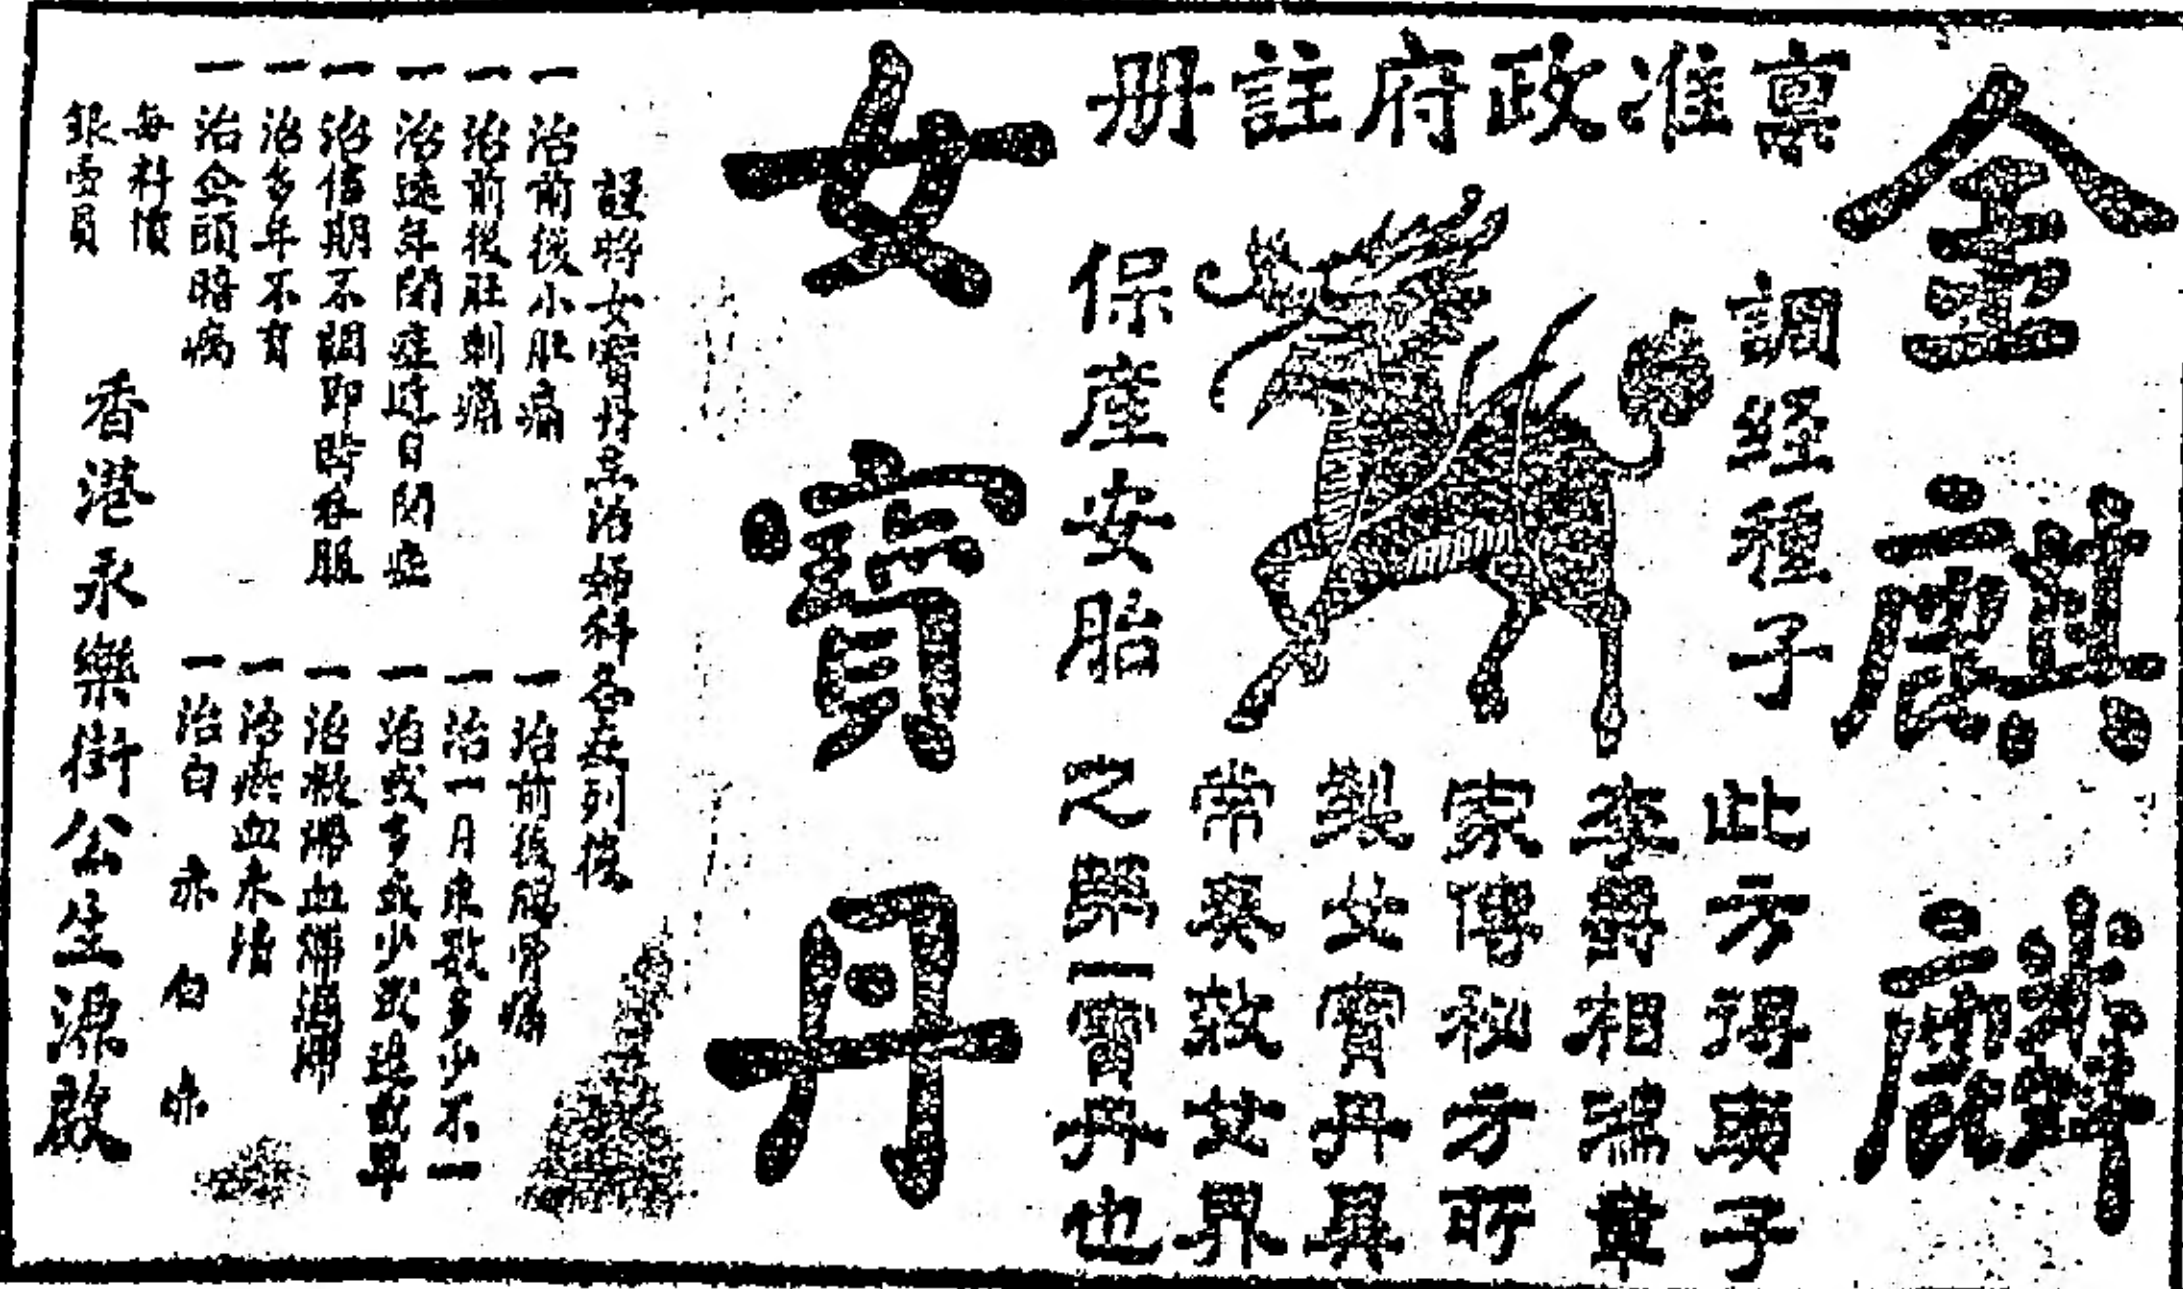 金麒麟
稟准政府註册
調經種子
保產安胎
此方得東子
李爵相鴻章
家傳秘方所
製女寶丹異
常奧效女界
之第一寶丹也
女寶丹
謹將女寶丹主治婦科各症列後
一治前後小肚痛
一治前後肚刺痛
一治遠年閉症近日閉症
一治信期不調即時吞服
一治多年不育
一治頭暗病
一治前後腰骨痛
一治一月來數多少不一
一治或多或少或遲或早
一治血
一治血不清
一治白 赤 白 赤
每料價
銀壹員
香港永樂街公生源啟